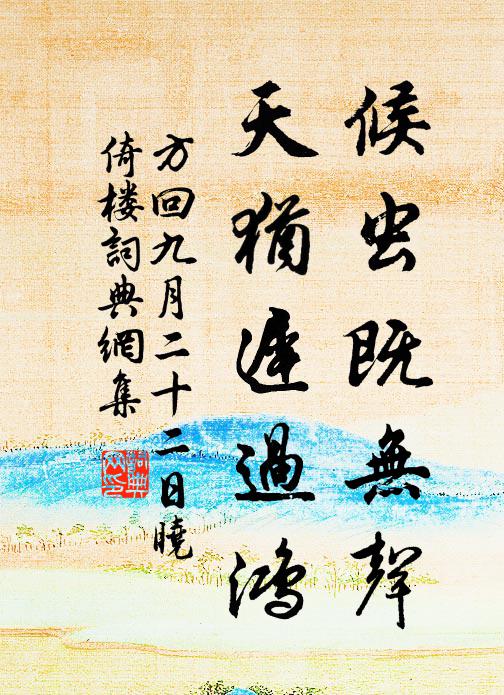 候虫既無聲
天猶遲過鴻
方回九月二十二日曉
倚楼詞典網集